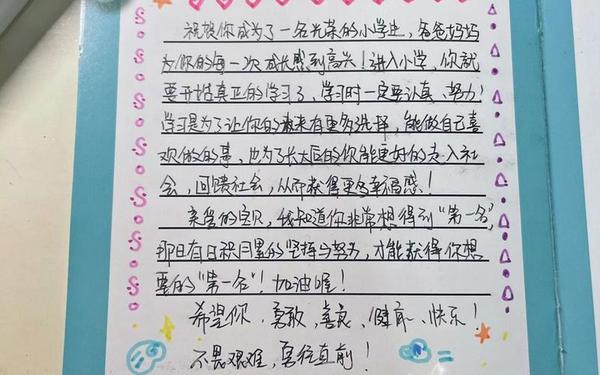 祝贺你成为了一名光荣的小学生,爸爸妈妈
为你的每一次成长感到高兴!进入小学,你就
要开始真正的学习了,学习时一定要认真、努力!
学习是为了让你的未来有更多选择,能做自己喜
欢做的事,也为了长大后的你能更好的走入社
会,回馈社会,从而获得更多幸福感!
亲爱的宝贝,我知道你非常想得到“第一名”,
那只有日积月累的坚持与努力,才能获得你想
要的“第一名”!加油喔!
希望你、勇敢、善良、健康、快乐!
不畏艰难,勇往直前!